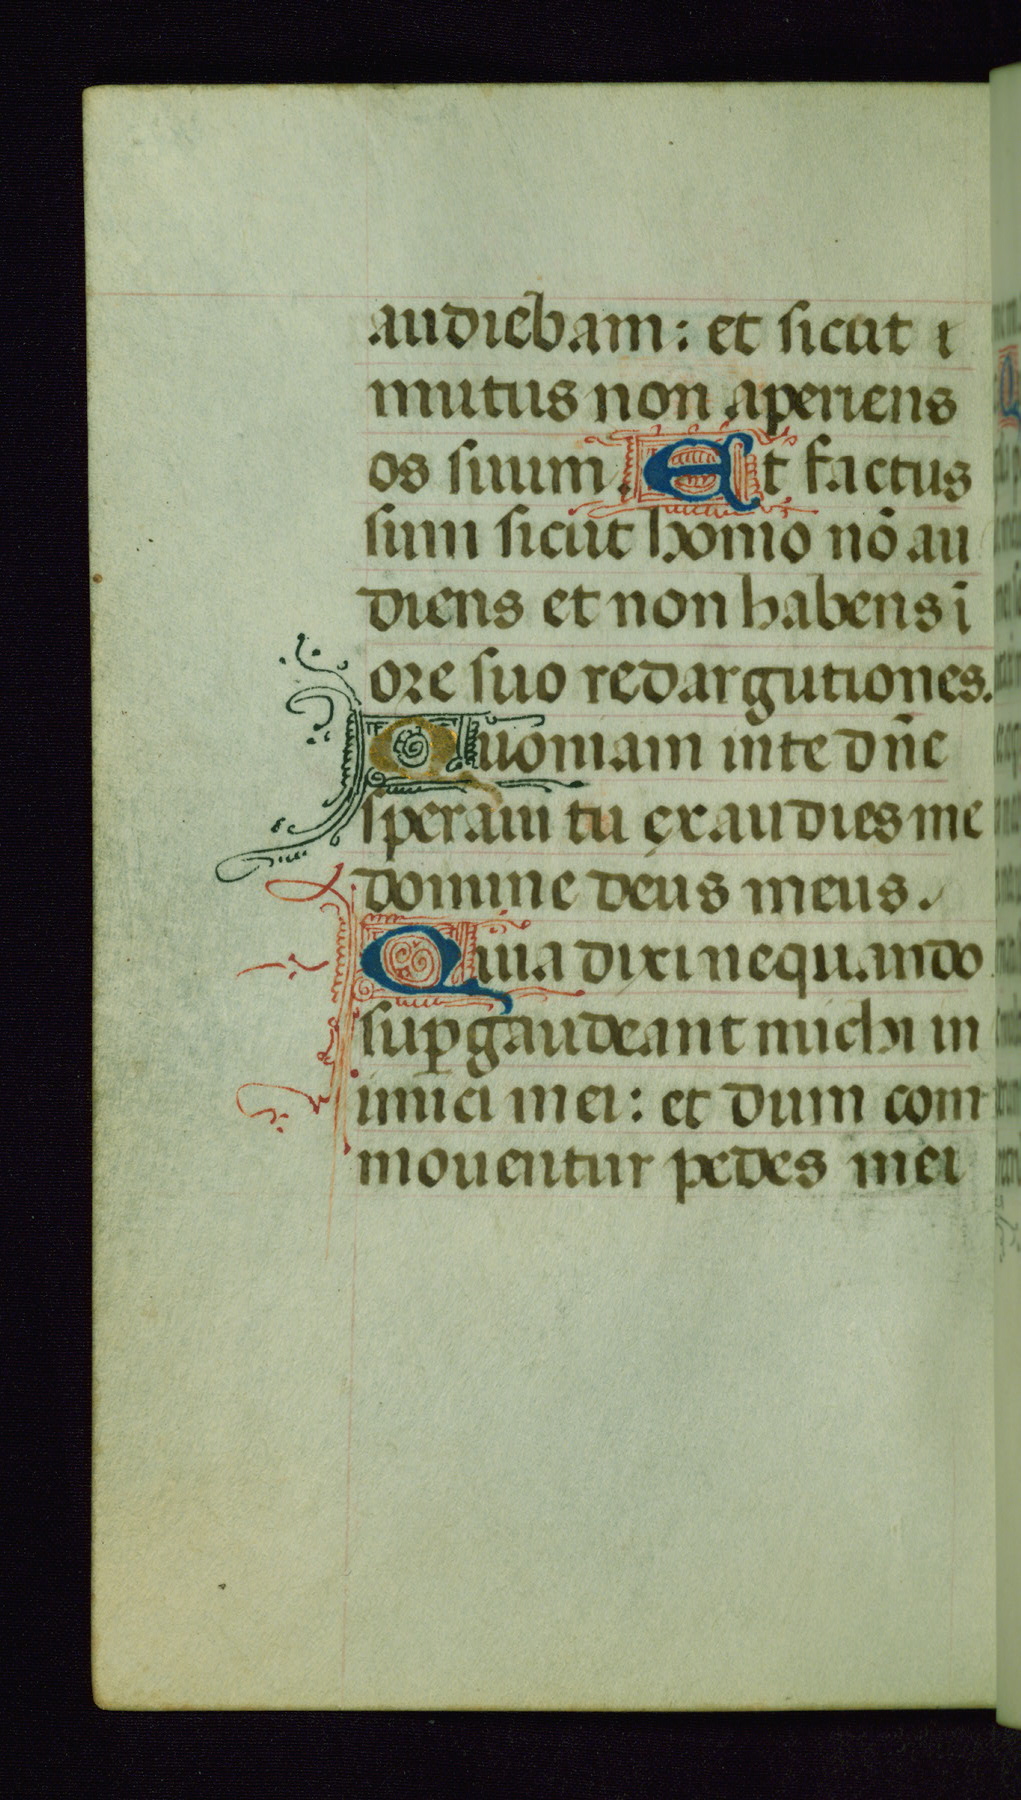 audiebam: et sicut ı
mutus non aperiens
os suum. Et factus
sum sicut homo nō au
diens et non habens ī
ore suo redargutiones.
Quoniam in te dñe
speraui tu exaudies me
domine deus meus.
Quia dixi nequando
suꝑgaudeant michi in
imici mei: et dum com
mouentur pedes mei